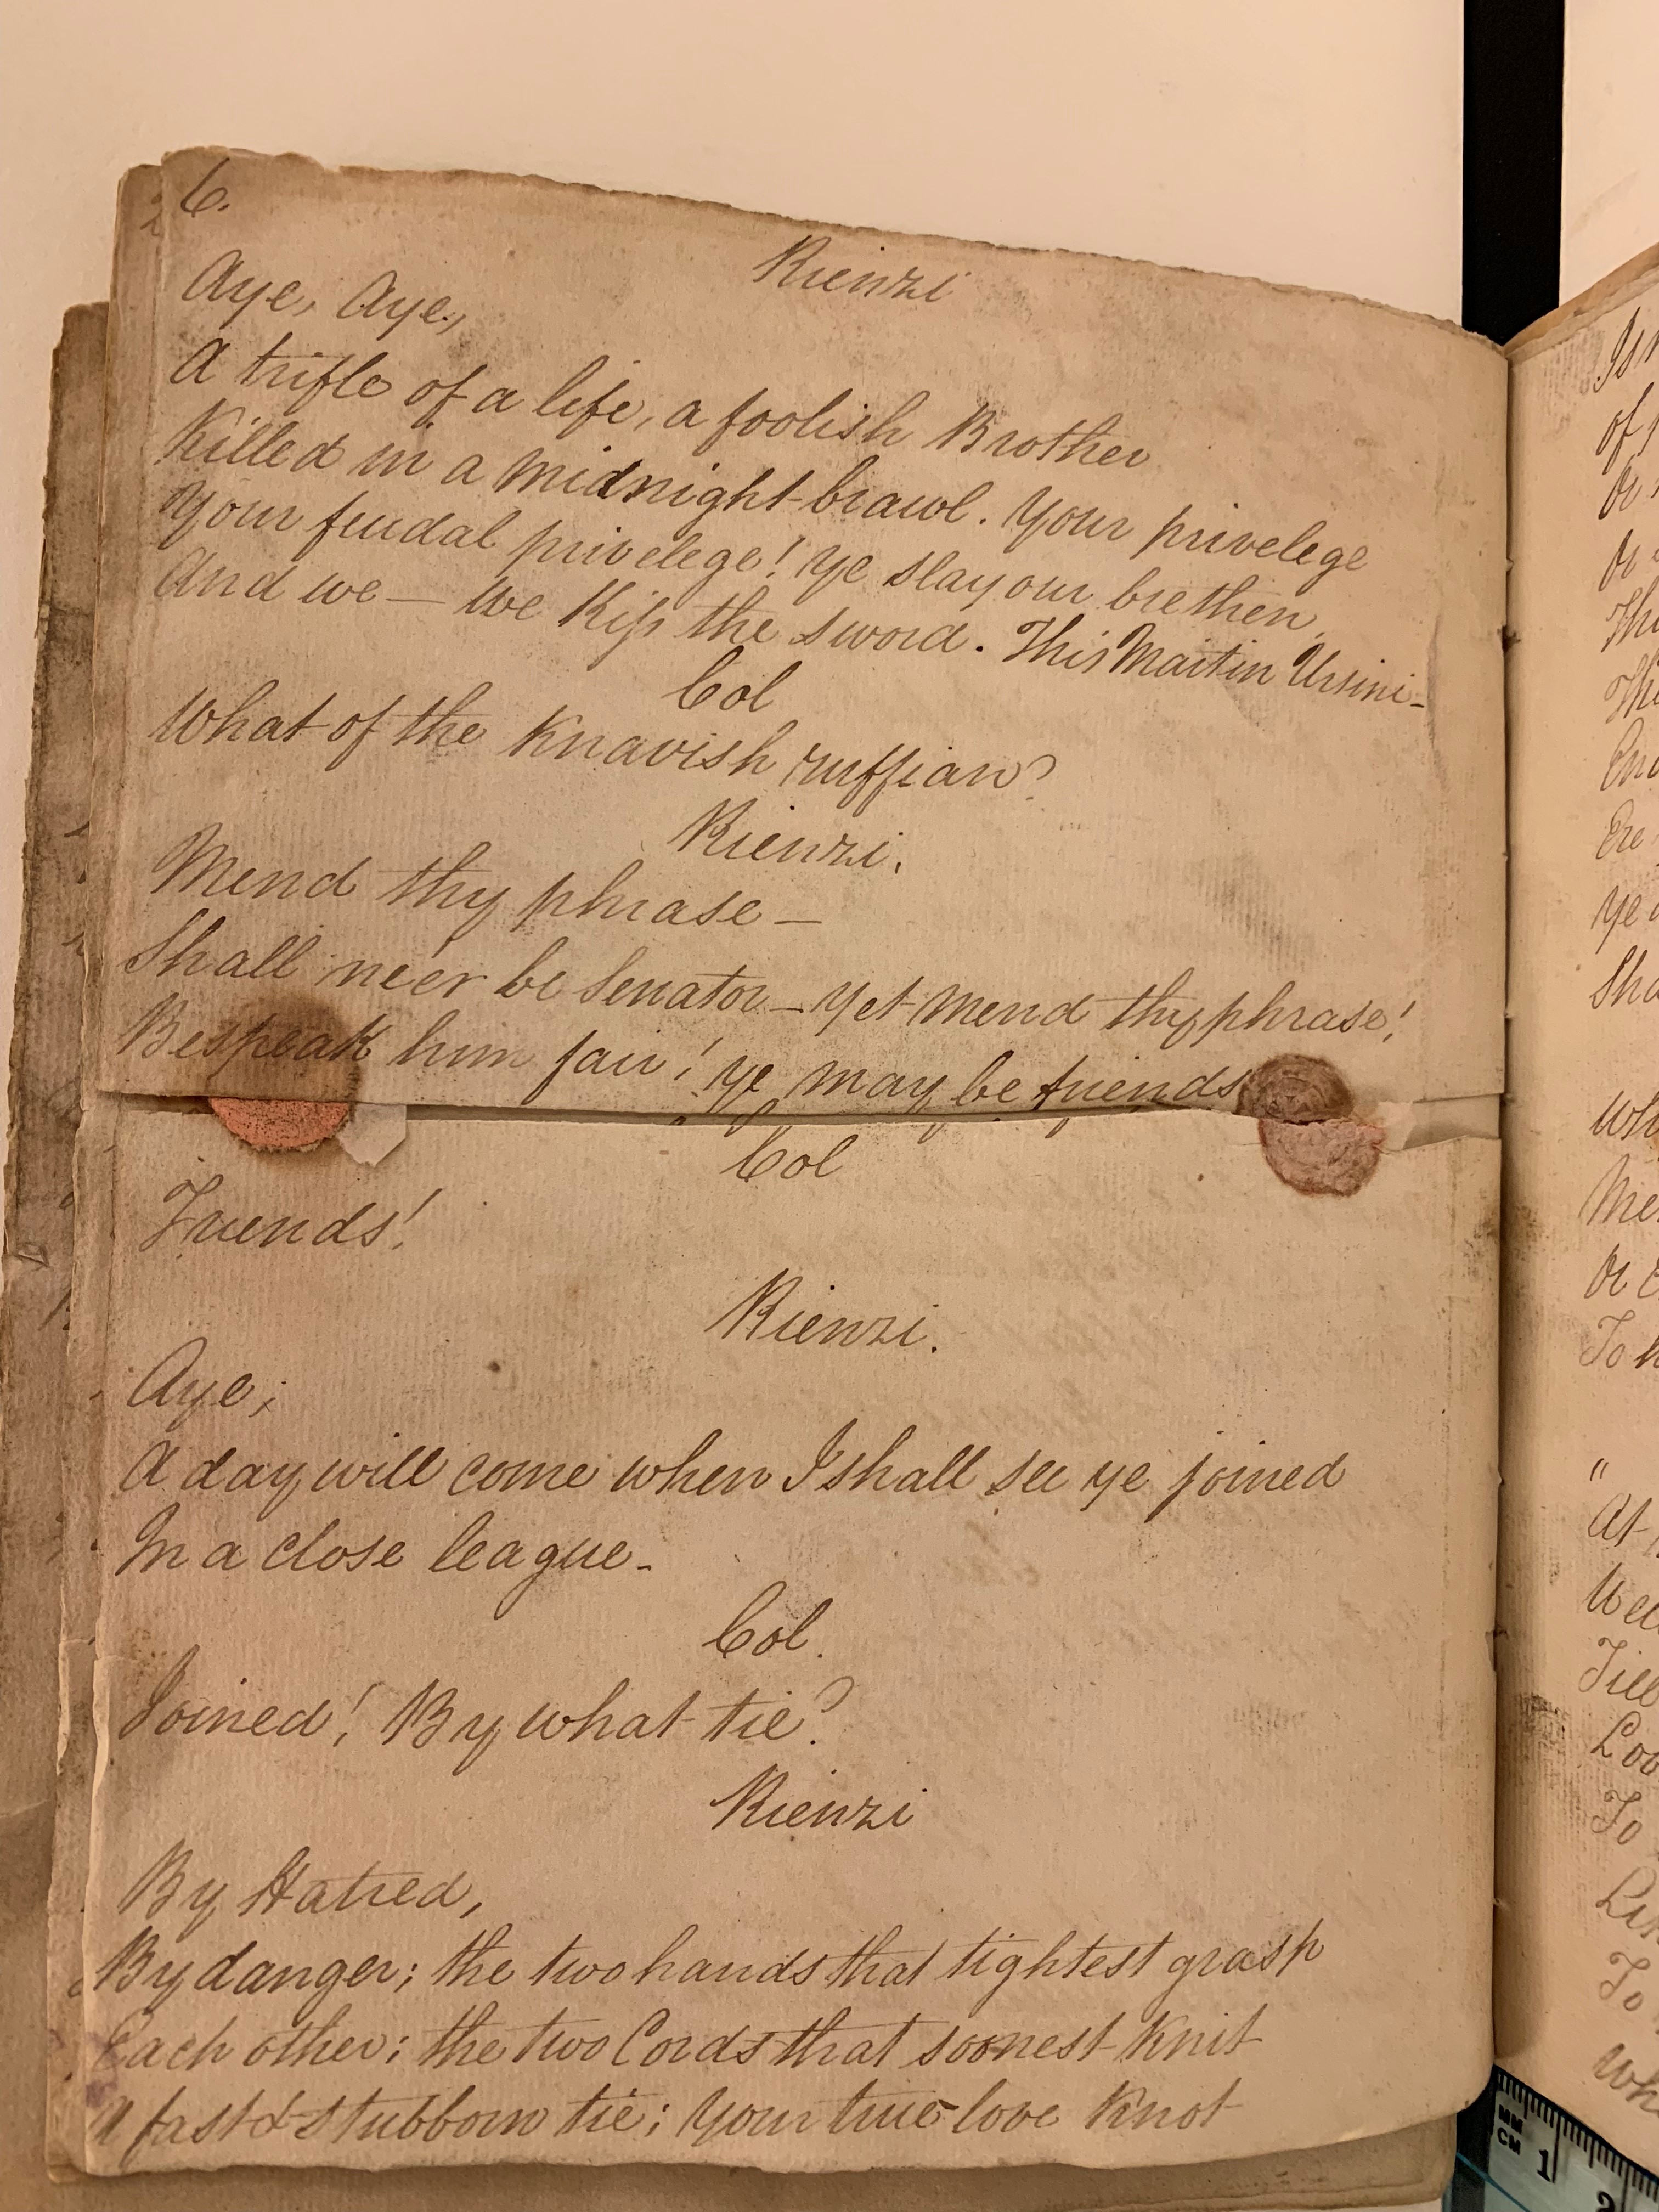 6.
Rienzi
Aye, Aye,
A trifle of a life, a foolish Brother
Killed in a midnight-brawl. Your privelege
Your feudal privelege! Ye slay our brethen
And we — We Kiss the sword. This Martin Ursini-
Col
What of the Knavish ruffian?
Rienzi.
Mend thy phrase —
Shall neer be Senator — Yet mend thy phrase!
Bespeak him fair! Ye may be friends
Col
Friends!
Rienzi.
Aye;
A day will come when I shall see ye joined
In a close league -
Col.
Joined! By what tie?
Rienzi
By Hatred,
By danger; the two hands that tightest grasp
Each other; the two Cords that soonest knit
A fast & stubborn tie; Your true love Knot
of
Or
Or
Ere
Ye
Sha
Or
To
"
At
Till
To
To